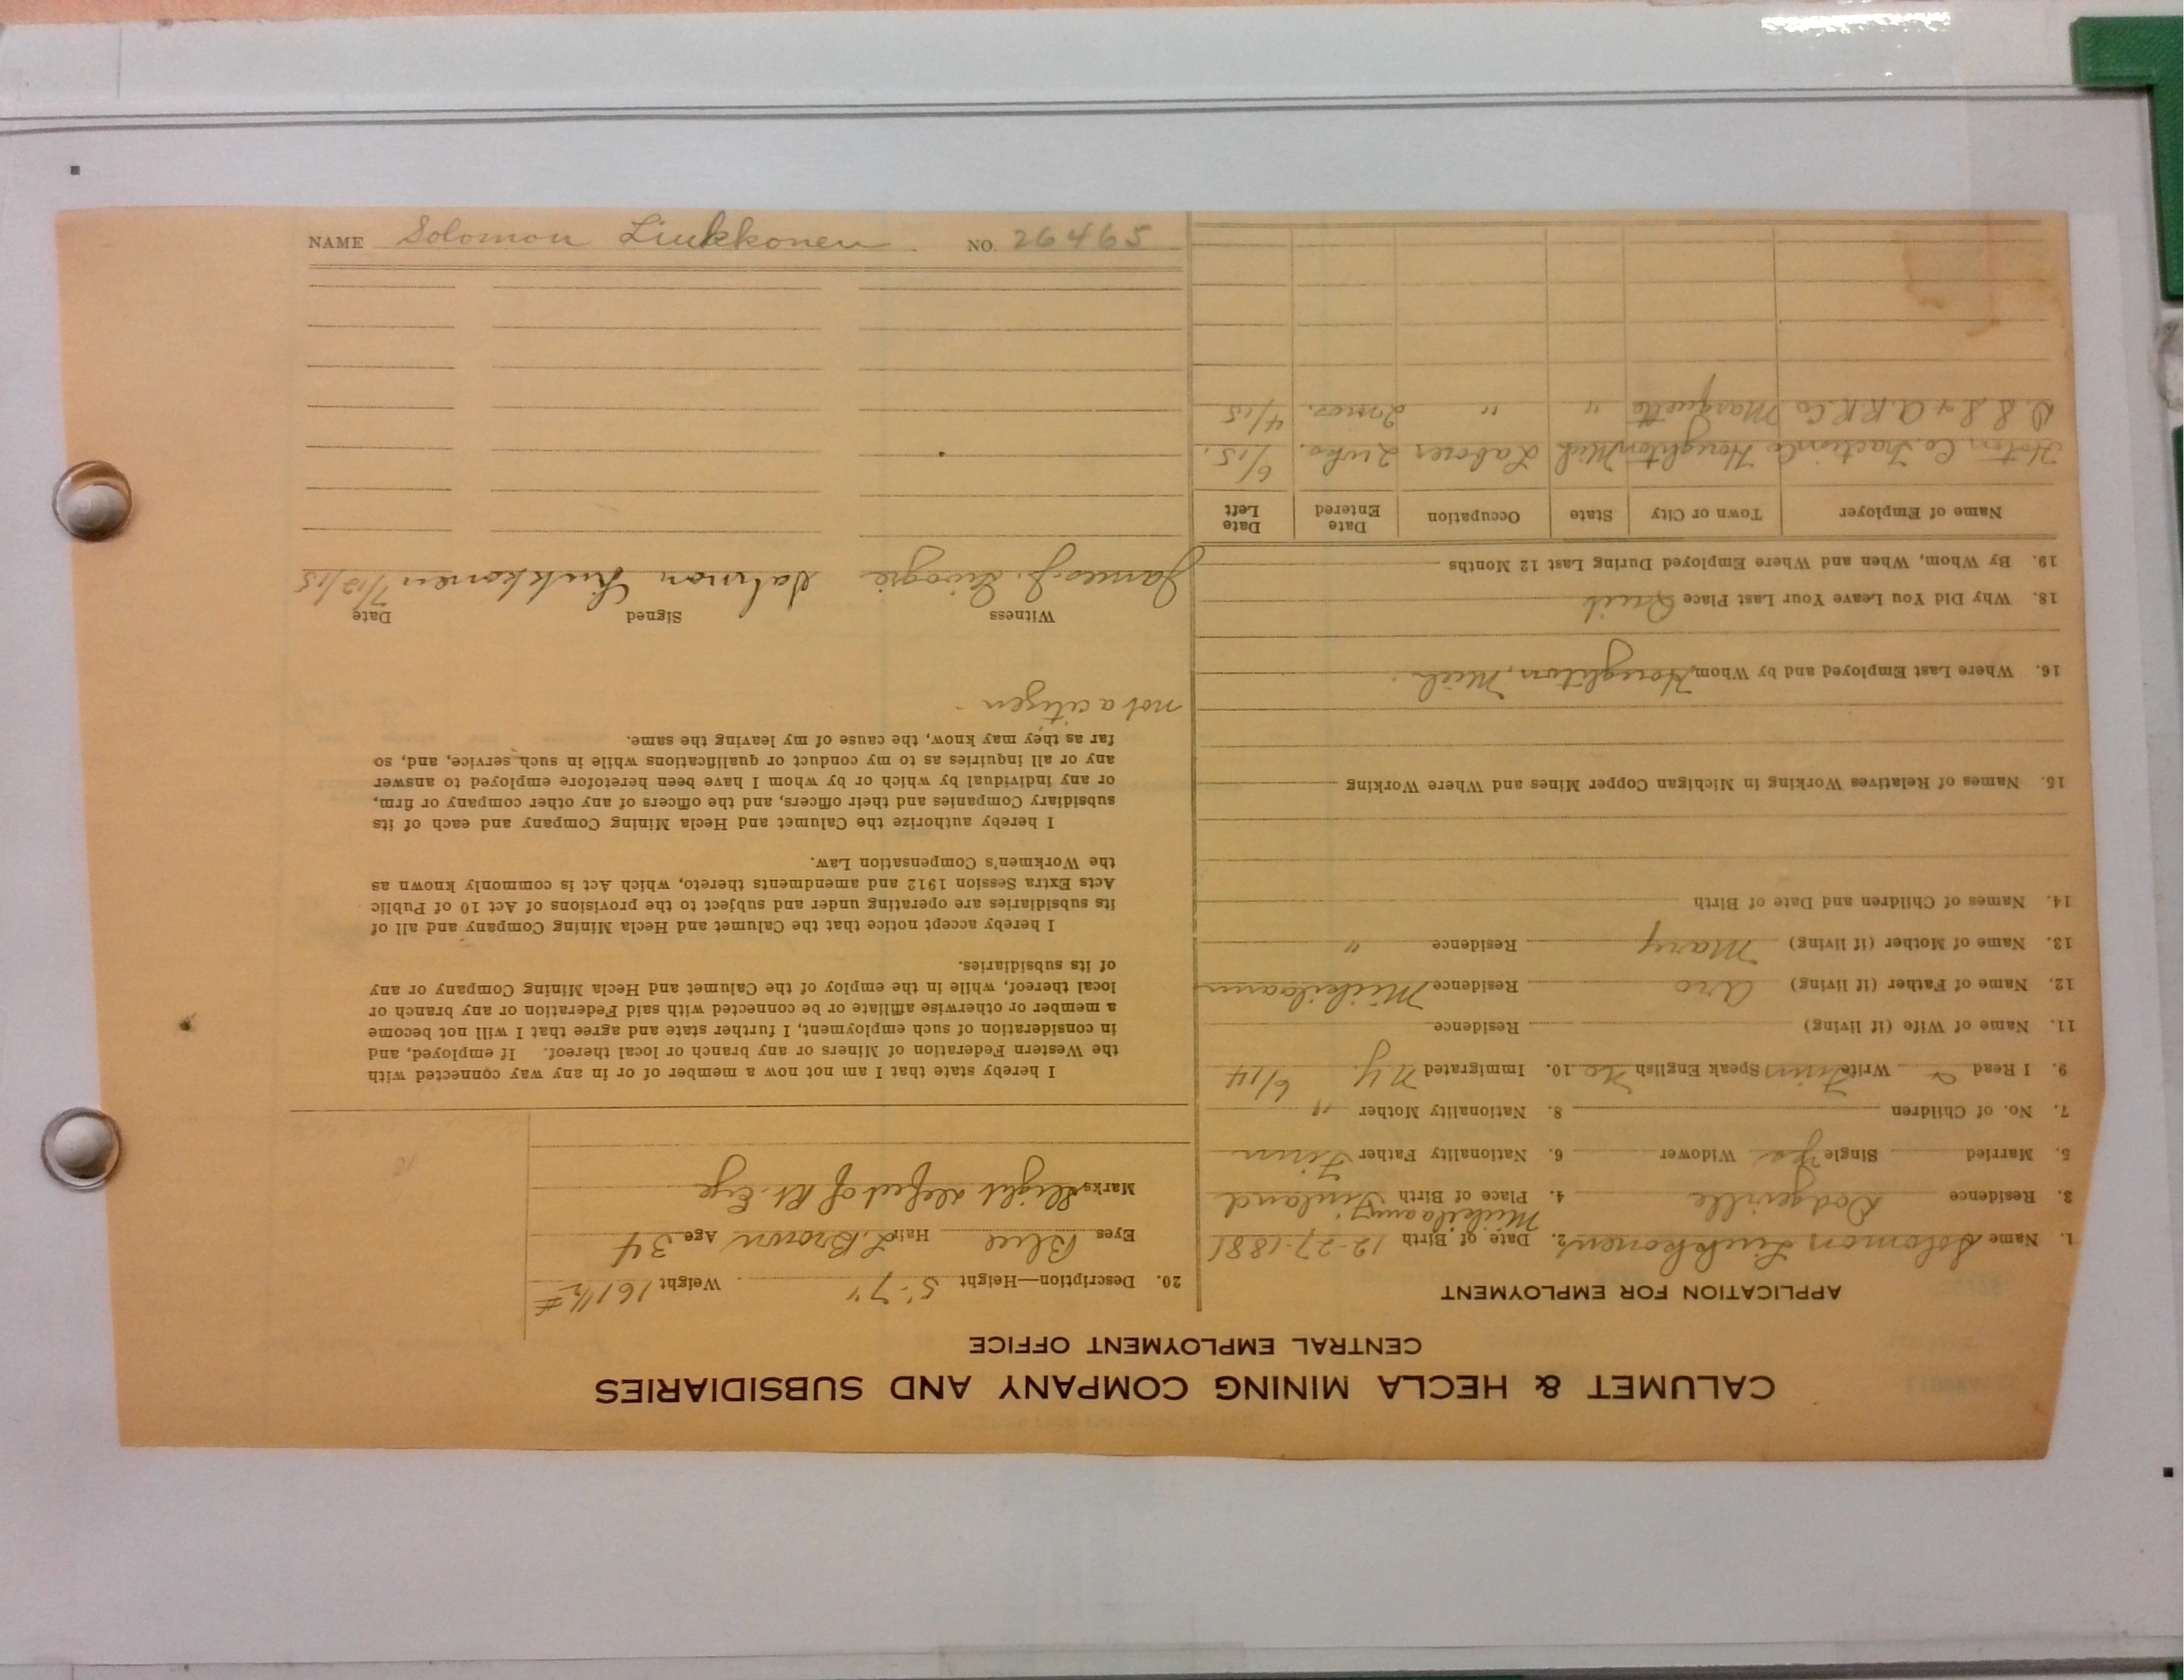 CALUMET & HECLA MINING COMPANY AND SUBSIDIARIES
CENTRAL EMPLOYMENT OFFICE
APPLICATION FOR EMPLOYMENT
1. Name Solomon Liukkonen 2. Date of Birth 12-27-1881
3. Residence Dodgeville 4. Place of Birth Finland
5. Married Single Yes Widower 6. Nationality Father Finn
7. No. of Children 8. Nationality Mother "
9. I Read & Write Finn Speak English No 10. Immigrated N.Y. 6/14
11. Name of Wife (if living) Residence
12. Name of Father (if living) Aro Residence
13. Name of Mother (if living) Mary Residence "
14. Names of Children and Date of Birth
15. Names of Relatives Working in Michigan Copper Mines and Where Working
16. Where Last Employed and by Whom, Houghton, Mich.
18. Why Did You Leave Your Last Place Quit
19. By Whom, When and Where Employed During Last 12 Months
Name of Employer Town or City State Occupation Date Entered Date Left
Hoton Co. Traction Co Houghton Mich Laborer 2 wks. 6/15.
D.S.S. & A.R.R. Co Marquette " " 2 mos. 4/15
20. Description—Height 5'-7" Weight 161 1/2 #
Eyes Blue Hair L. Brown Age 34
Marks Slight defect of Rt. Eye
I hereby state that I am not now a member of or in any way connected with
the Western Federation of Miners or any branch or local thereof. If employed, and
in consideration of such employment, I further state and agree that I will not become
a member or otherwise affiliate or be connected with said Federation or any branch or
local thereof, while in the employ of the Calumet and Hecla Mining Company or any
of its subsidiaries.
I hereby accept notice that the Calumet and Hecla Mining Company and all of
its subsidiaries are operating under and subject to the provisions of Act 10 of Public
Acts Extra Session 1912 and amendments thereto, which Act is commonly known as
the Workmen's Compensation Law.
I hereby authorize the Calumet and Hecla Mining Company and each of its
subsidiary Companies and their officers, and the officers of any other company or firm,
or any individual by which or by whom I have been heretofore employed to answer
any or all inquiries as to my conduct or qualifications while in such service, and, so
far as they may know, the cause of my leaving the same.
not a citizen.
Witness Signed Date
James J. Salmon Liukkonen 7/12/15
NAME Solomon Liukkonen NO. 26465